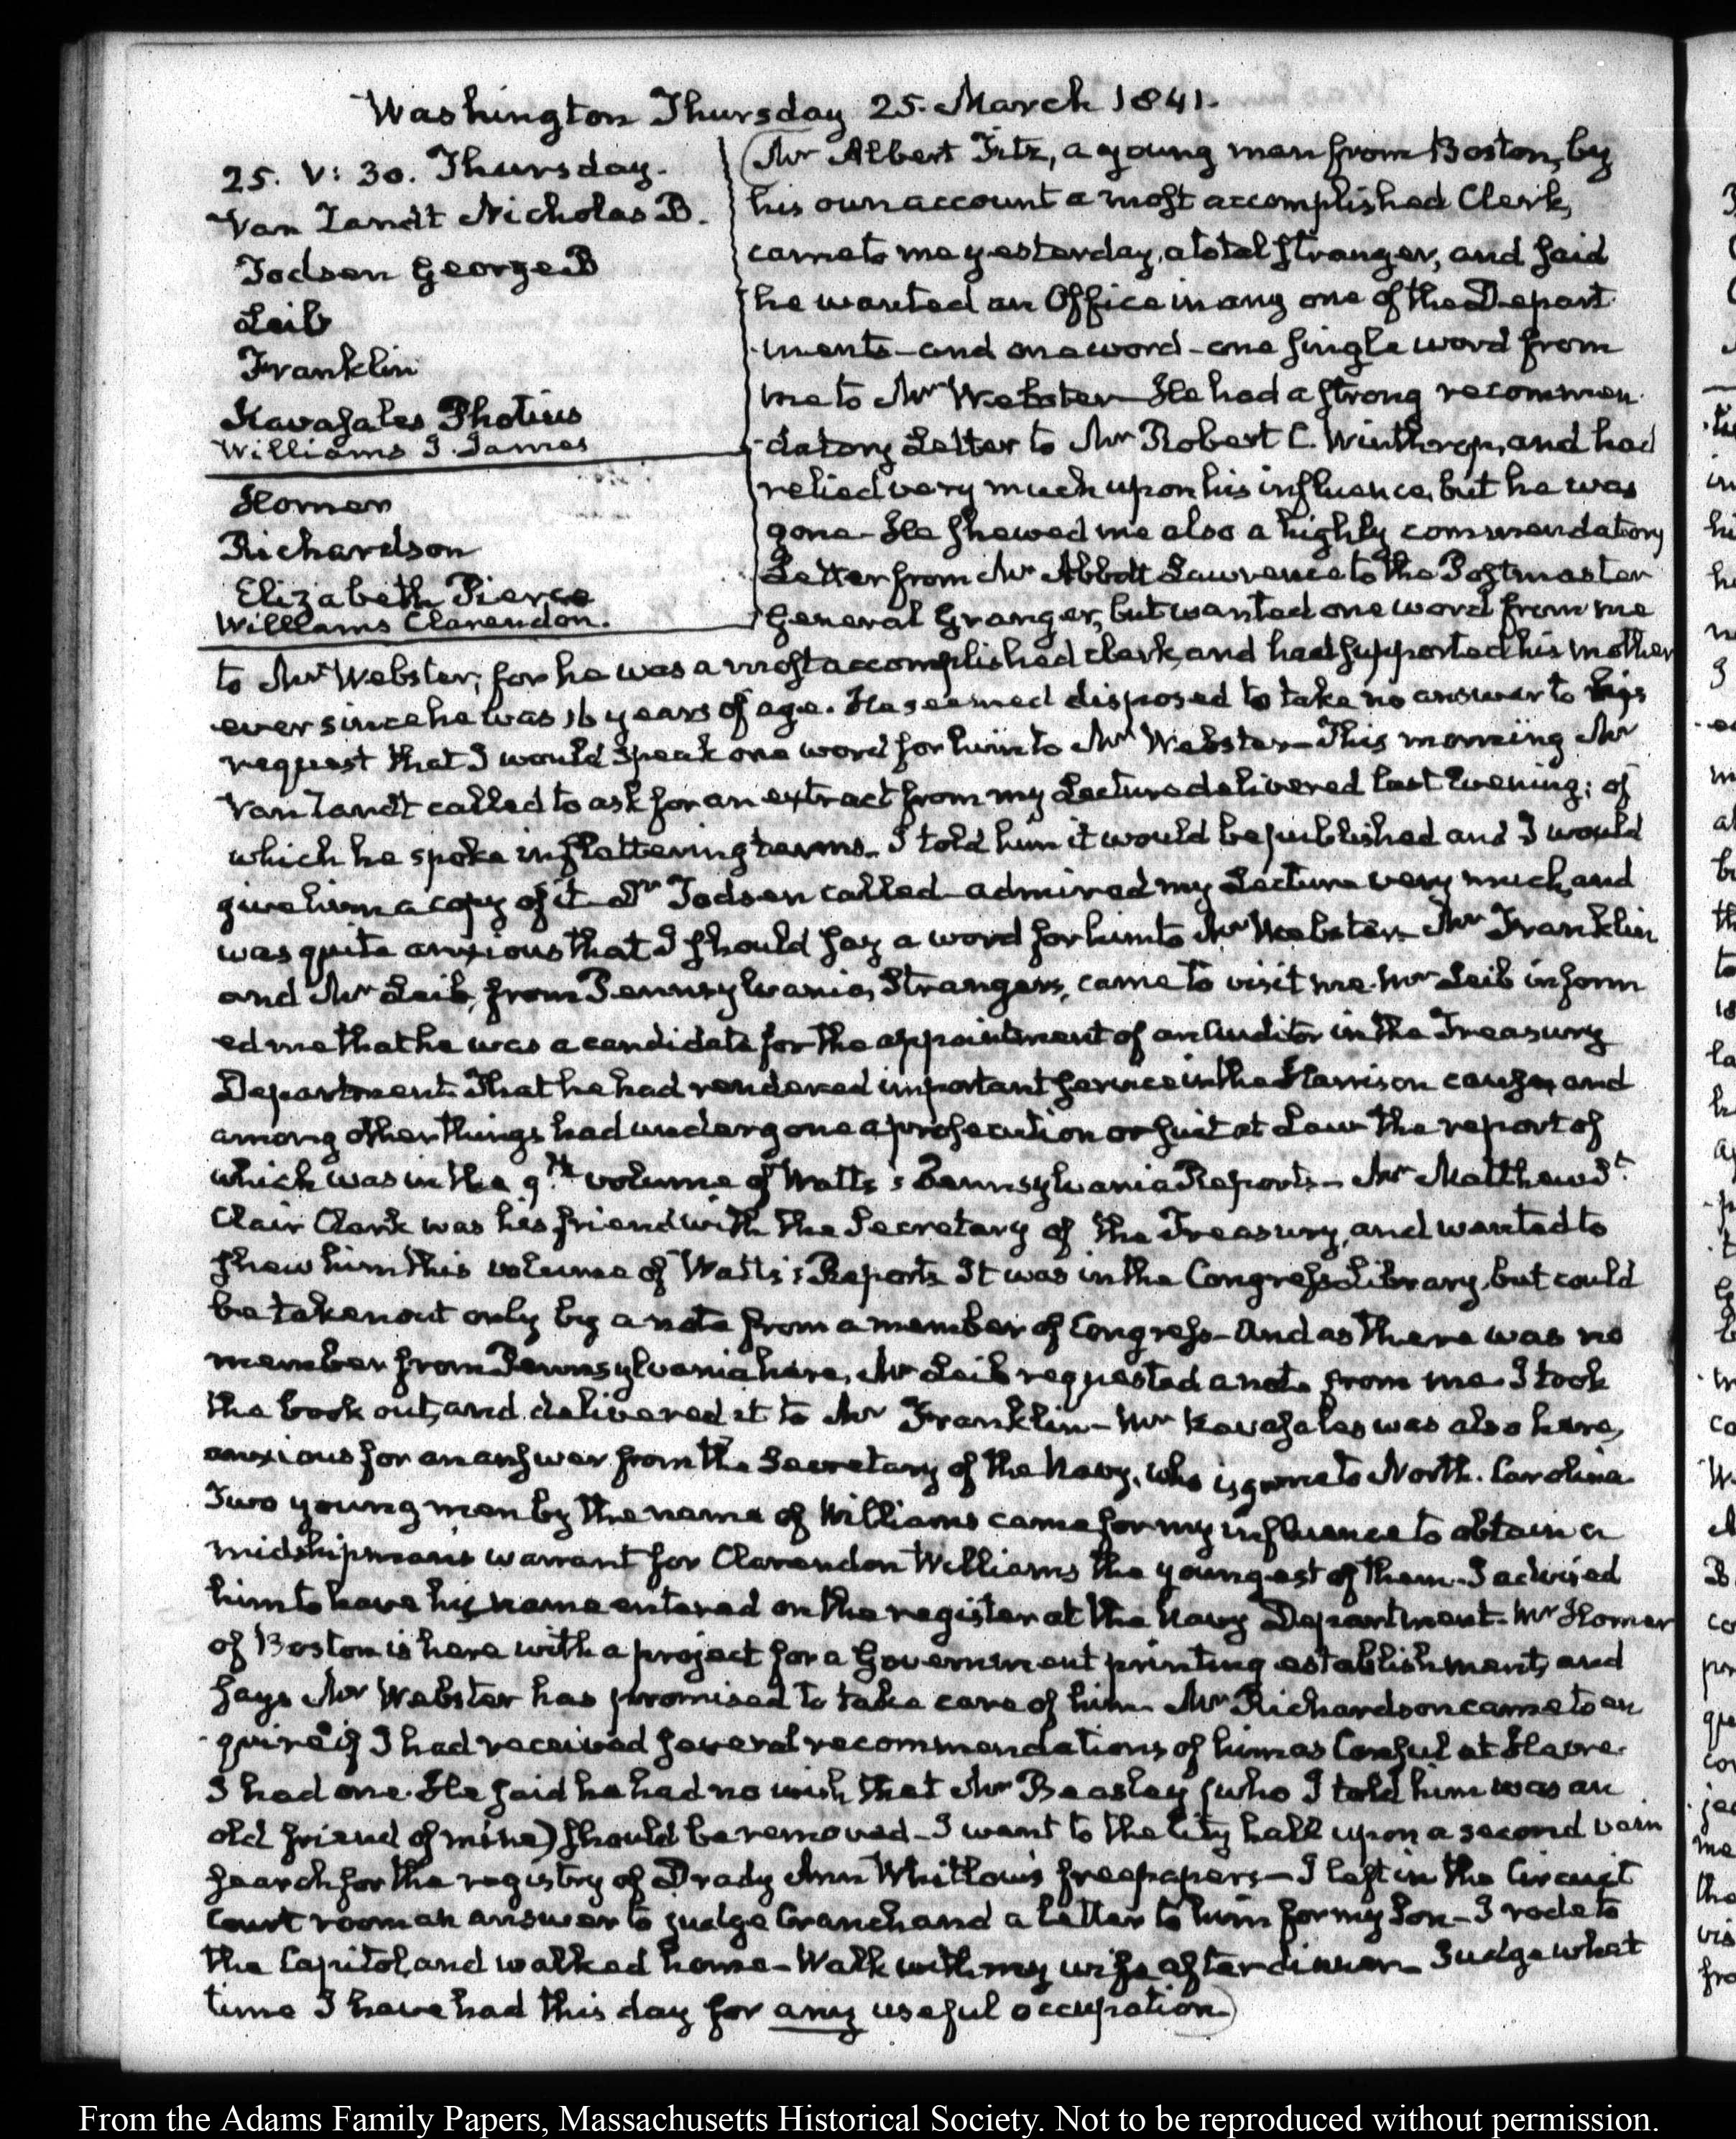 Washington Thursday 25. March 1841.
25. V: 30. Thursday.
Van Zandt Nicholas B.
Todsen George B
Leib
Franklin
Kavasales Photius
Williams J. James
Homer
Richardson
Elizabeth Pierce
Williams Clarendon.
(Mr Albert Fitz, a young man from Boston, by
his own account a most accomplished Clerk,
came to me yesterday, a total stranger, and said
he wanted an Office in any one of the Depart
ments—and one word—one single word from
me to Mr Webster—He had a strong recommen
datory Letter to Mr Robert C. Winthrop, and had
relied very much upon his influence, but he was
gone—He shewed me also a highly commendatory
Letter from Mr Abbott Lawrence to the Postmaster
General Granger, but wanted one word from me
to Mr Webster; for he was a most accomplished clerk, and had supported his mother
ever since he was 16 years of age. He seemed disposed to take no answer to his
request that I would speak one word for him to Mr Webster—This morning Mr
Van Zandt called to ask for an extract from my Lecture delivered last Evening; of
which he spoke in flattering terms—I told him it would be published and I would
give him a copy of it—Dr Todsen called—admired my Lecture very much, and
was quite anxious that I should say a word for him to Mr Webster—Mr Franklin
and Mr Leib, from Pennsylvania, Strangers, came to visit me. Mr Leib inform
ed me that he was a candidate for the appointment of an Auditor in the Treasury
Department. That he had rendered important service in the Harrison cause, and
among other things had undergone a prosecution or suit at Law the report of
which was in the 9.th volume of Watts's Pennsylvania Reports—Mr Matthew St.
Clair Clark was his friend with the Secretary of the Treasury, and wanted to
shew him this volume of Watts's Reports. It was in the Congress Library, but could
be taken out only by a note from a member of Congress—And as there was no
member from Pennsylvania here, Mr Leib requested a note from me. I took
the book out, and delivered it to Mr Franklin—Mr Kavasales was also here,
anxious for an answer from the Secretary of the Navy, who is gone to North. Carolina
Two young men by the name of Williams came for my influence to obtain a
midshipman's warrant for Clarendon Williams the youngest of them. I advised
him to have his name entered on the register at the Navy Department—Mr Homer
of Boston is here with a project for a Government printing establishment, and
says Mr Webster has promised to take care of him. Mr Richardson came to en
quire if I had received several recommendations of him as Consul at Havre.
I had one. He said he had no wish that Mr Beasley (who I told him was an
old friend of mine) should be removed—I went to the City hall upon a second vain
search for the registry of Drady Ann Whitlow's free papers—I left in the Circuit
Court room an answer to judge Cranch and a letter to him for my Son—I rode to
the Capitol, and walked home—Walk with my wife after dinner—Judge what
time I have had this day for any useful occupation)
From the Adams Family Papers, Massachusetts Historical Society. Not to be reproduced without permission.